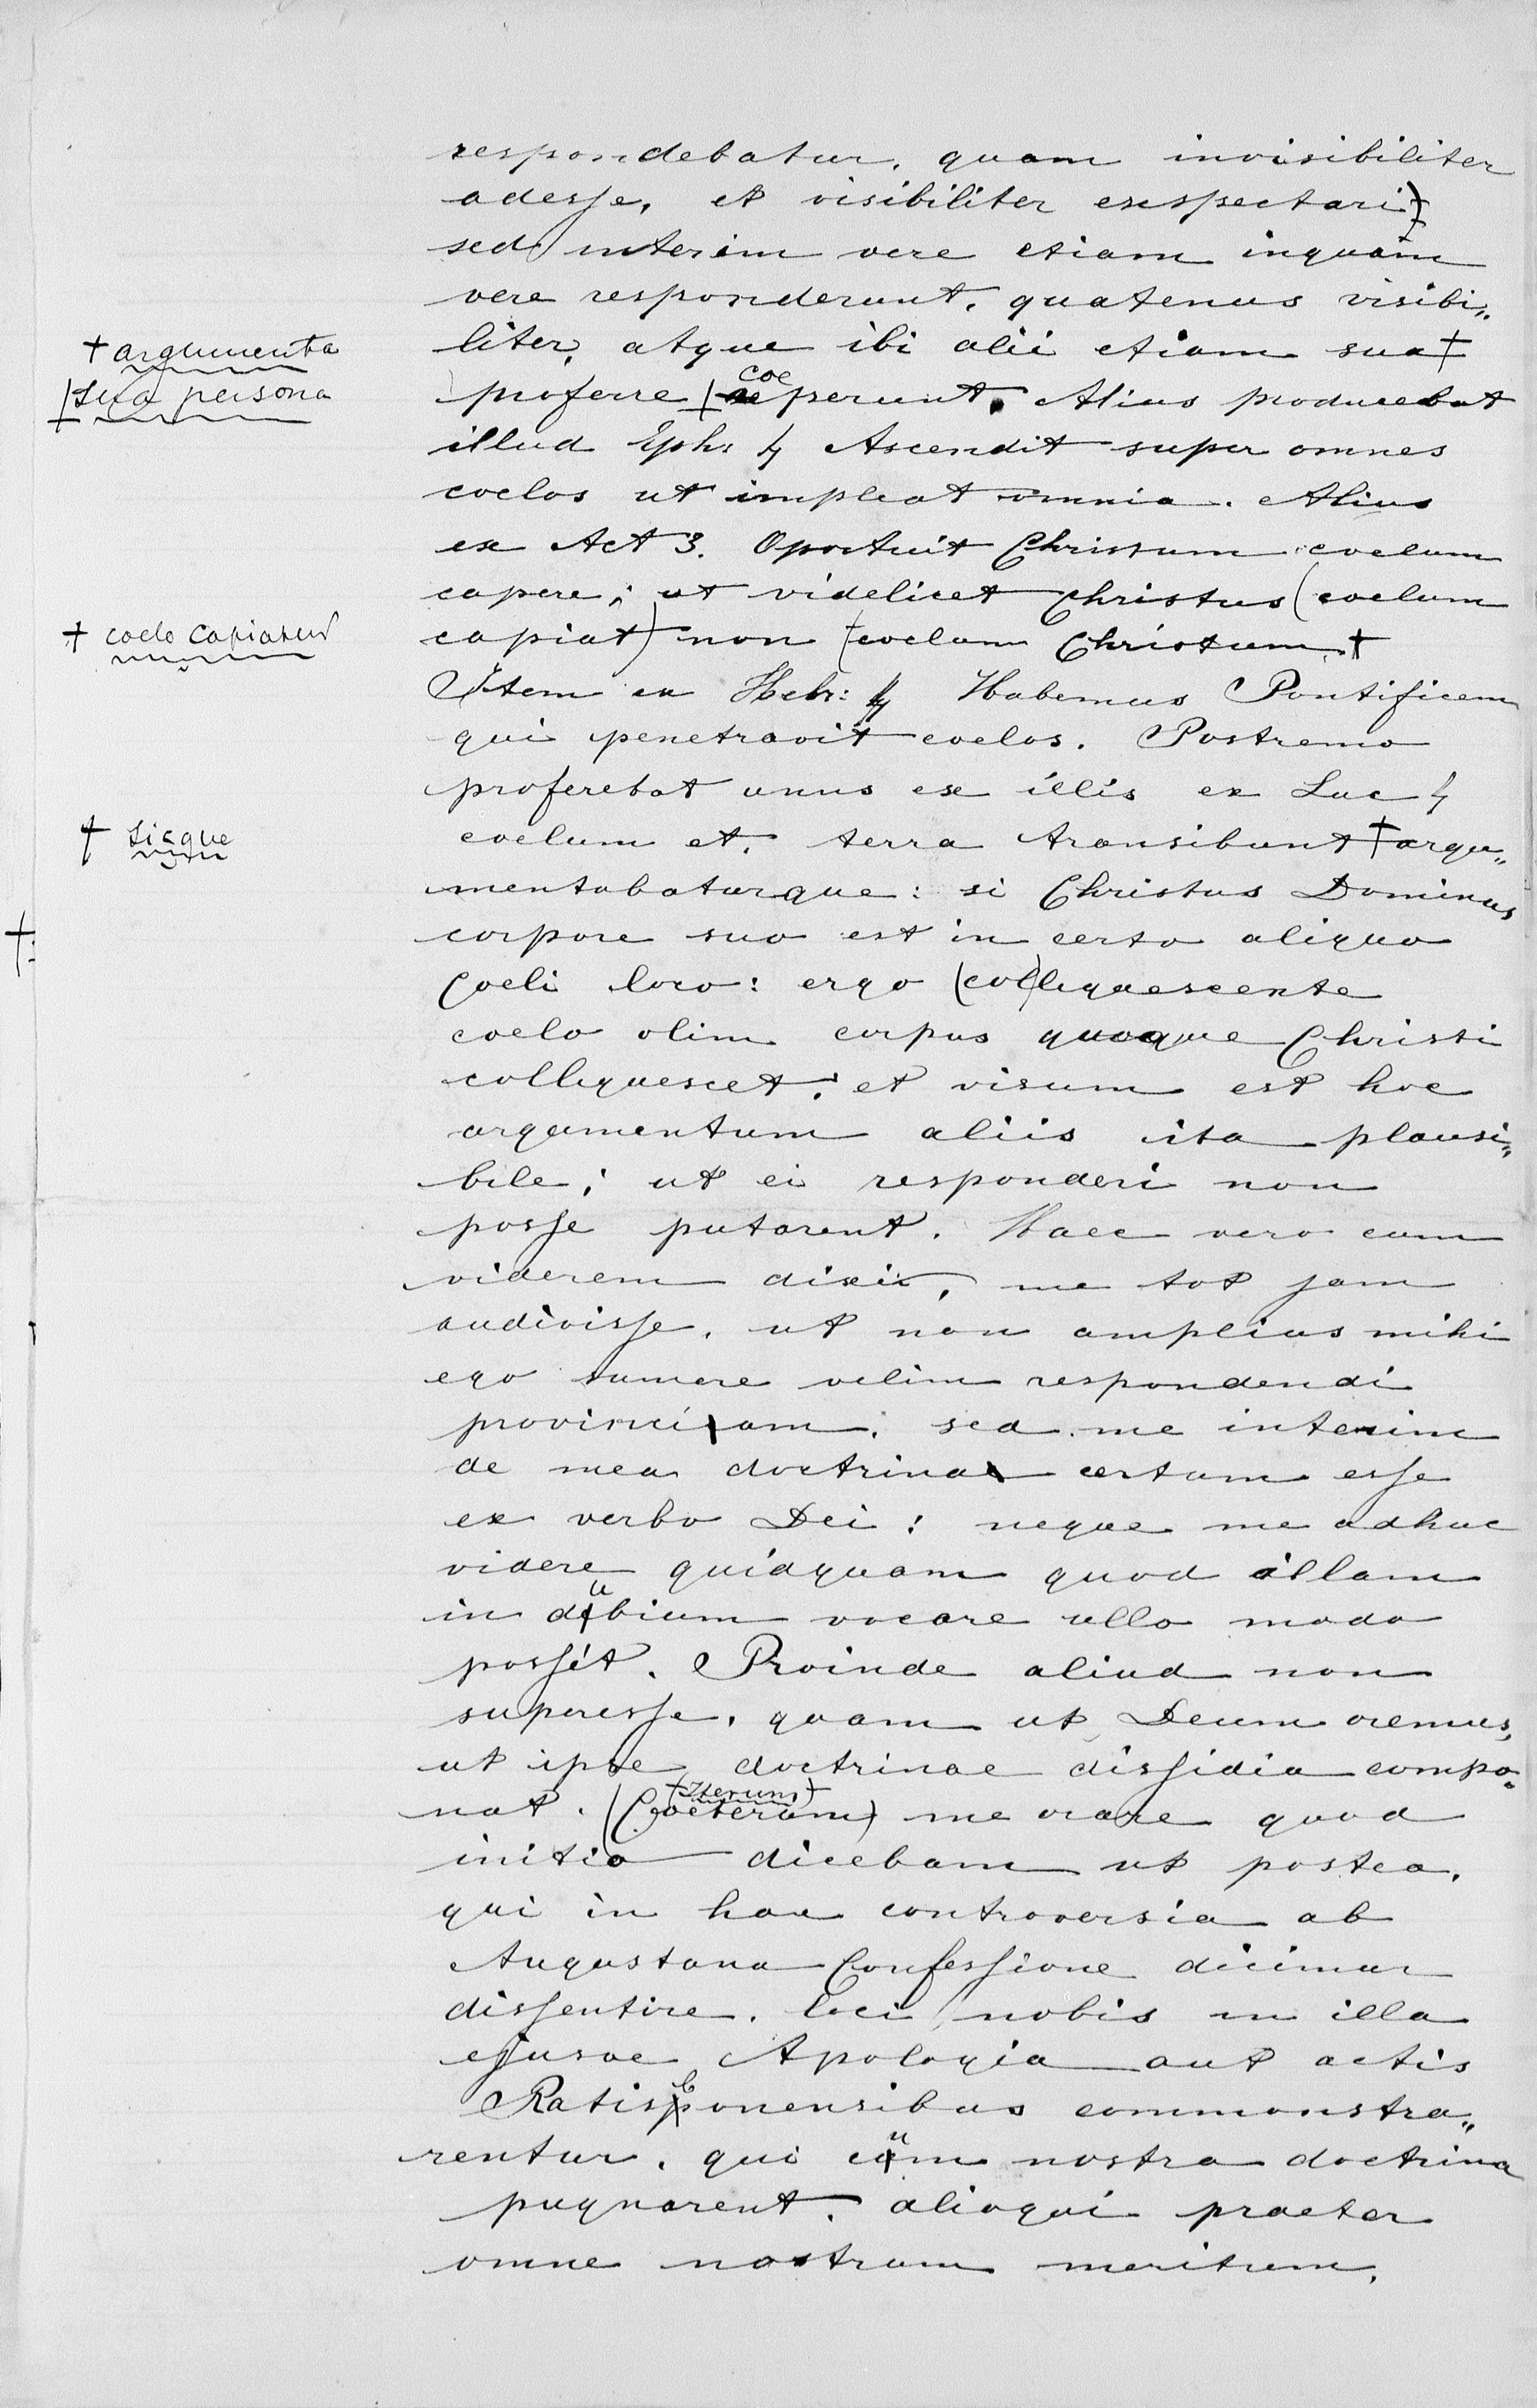 respondebatur, quam invisibiliter
adesse, et visibiliter exspectari
sed interim vere etiam inquam
vere responderunt, quatenus visibi„
† argumenta
liter, atque ibi alii etiam sua †
sua persona
proferre coeperunt. Alius producebat
illud Eph: 4 Ascendit super omnes
coelos ut impleat omnia. Alius
ex Act 3. Oportuit Christum coelum
capere; ut videlicet Christus (coelum
† coelo capiatur
capiat) non (coelum Christum †
Item ex Hebr: 4 Habemus Pontificem
qui penetravit coelos. Postremo
proferebat unus ex illis ex Luc 4
† sicque
coelum et terra transibunt † argu„
mentabaturque: si Christus Dominus
†:
corpore suo est in certo aliquo
Coeli loco: ergo (col)liquescente
coelo olim corpus quoque Christi
colliquescet; et visum est hoc
argumentum aliis ita plausi„
bile; ut ei responderi non
posse putarent. Haec vero cum
viderem dixi, me tot jam
audivisse, ut non amplius mihi
ego sumere velim respondendi
provinciam, sed me interim
de mea doctrina certum esse
ex verbo Dei: neque me adhuc
videre quidquam quod illam
in dubium vocare ullo modo
possit. Proinde aliud non
superesse, quam ut Deum oremus,
ut ipse doctrinae dissidia compo„
(Iterum) †
nat. (Coeterum) me orare quod
initio dicebam ut postea,
qui in hac controversia ab
Augustana Confessione dicimur
dissentire, loci nobis in illa
ejusve Apologia aut actis
Ratisbonensibus commonstra„
rentur, qui cum nostra doctrina
pugnarent, alioqui praeter
omne nostrum meritum,